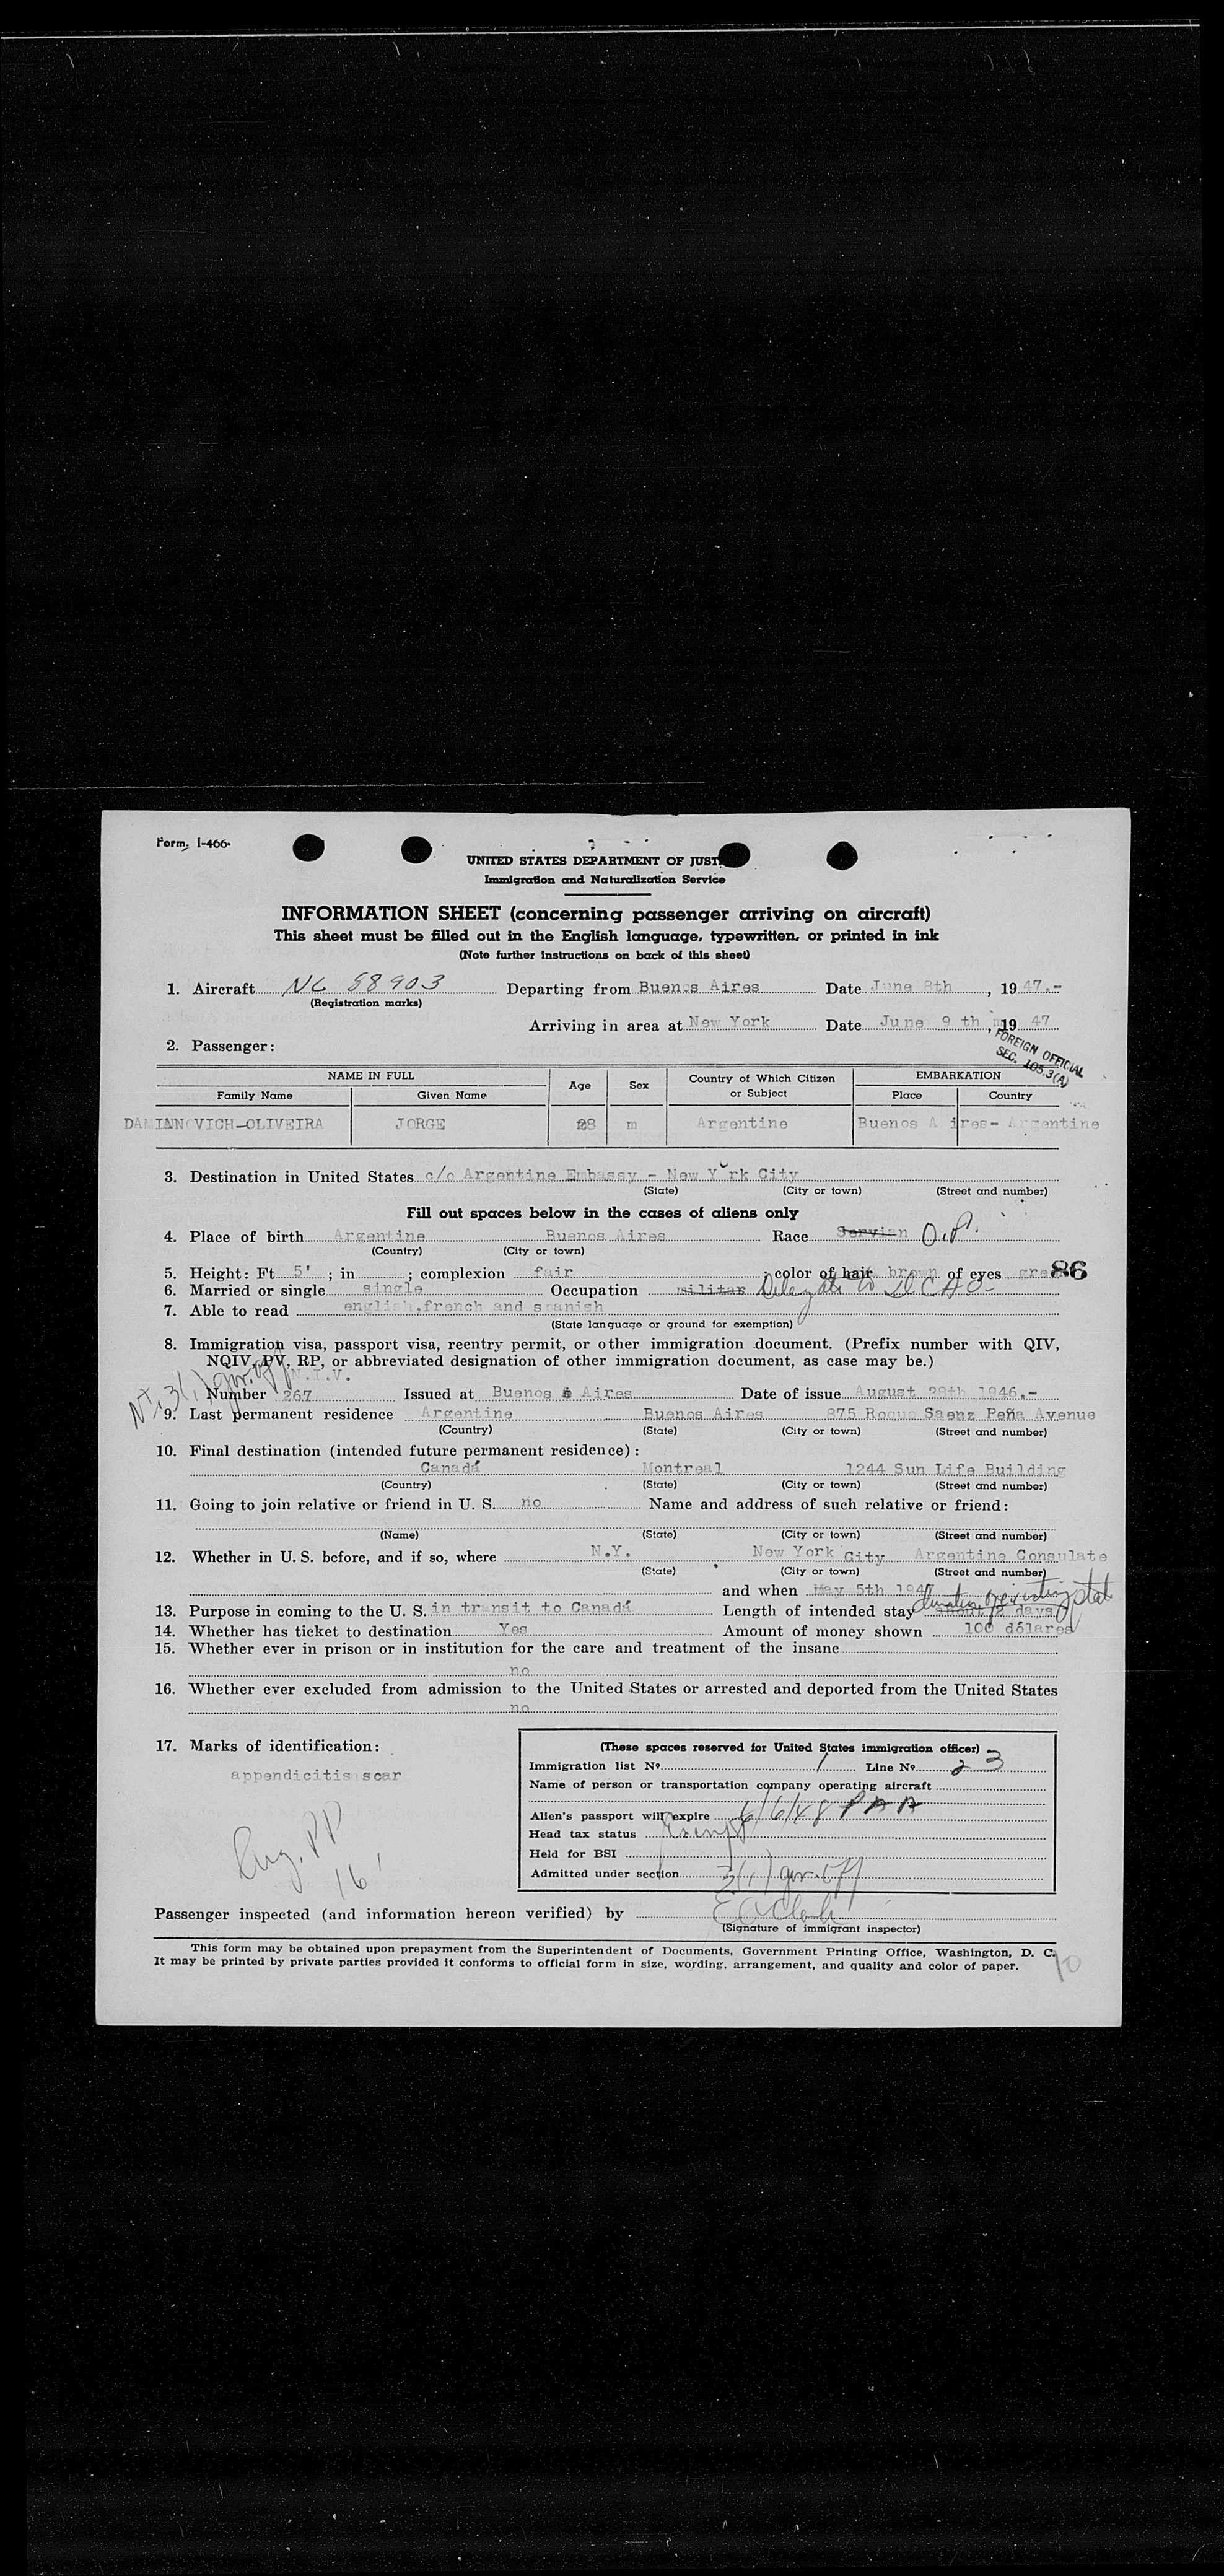 Form I-466
UNITED STATES DEPARTMENT OF JUST
Immigration and Naturalization Service
INFORMATION SHEET (concerning passenger arriving on aircraft)
This sheet must be filled out in the English language, typewritten, or printed in ink
(Note further instructions on back of this sheet)
1. Aircraft NC 88903 Departing from Buenos Aires Date June 8th, 1947.-
(Registration marks)
Arriving in area at New York Date June 9 th, 19 47
2. Passenger:
FOREIGN OFFICIAL
SEC. 105.3(A)
NAME IN FULL Age Sex Country of Which Citizen or Subject EMBARKATION
Family Name Given Name Place Country
DAMIANOVICH-OLIVEIRA JORGE 28 m Argentine Buenos Aires- Argentine
3. Destination in United States c/o Argentine Embassy - New York City
(State) (City or town) (Street and number)
Fill out spaces below in the cases of aliens only
4. Place of birth Argentine Buenos Aires Race Servian O.P.
(Country) (City or town)
5. Height: Ft 5' ; in ; complexion fair ; color of hair brown of eyes 86
6. Married or single single Occupation militar Delegate to ICAO
7. Able to read english,french and spanish
(State language or ground for exemption)
8. Immigration visa, passport visa, reentry permit, or other immigration document. (Prefix number with QIV,
NQIV, PV, RP, or abbreviated designation of other immigration document, as case may be.)
N.I.V.
3(1) gov. off
Number 267 Issued at Buenos Aires Date of issue August 28th 1946.-
9. Last permanent residence Argentine Buenos Aires 875 Roque Saenz Peña Avenue
(Country) (State) (City or town) (Street and number)
10. Final destination (intended future permanent residence):
Canadá Montreal 1244 Sun Life Building
(Country) (State) (City or town) (Street and number)
11. Going to join relative or friend in U. S. no Name and address of such relative or friend:
(Name) (State) (City or town) (Street and number)
12. Whether in U. S. before, and if so, where N.Y. New York City Argentine Consulate
(State) (City or town) (Street and number)
and when May 5th 1947
13. Purpose in coming to the U. S. in transit to Canadá Length of intended stay about 2 days
14. Whether has ticket to destination Yes Amount of money shown 100 dólares
15. Whether ever in prison or in institution for the care and treatment of the insane
no
16. Whether ever excluded from admission to the United States or arrested and deported from the United States
no
17. Marks of identification:
appendicitis scar
(These spaces reserved for United States immigration officer)
Immigration list No. 1 Line No. 23
Name of person or transportation company operating aircraft
PAA
Alien's passport will expire 6/6/48
Head tax status Exempt
Held for BSI
Admitted under section 3(1) gov. off
Passenger inspected (and information hereon verified) by
(Signature of immigrant inspector)
This form may be obtained upon prepayment from the Superintendent of Documents, Government Printing Office, Washington, D. C.
It may be printed by private parties provided it conforms to official form in size, wording, arrangement, and quality and color of paper.